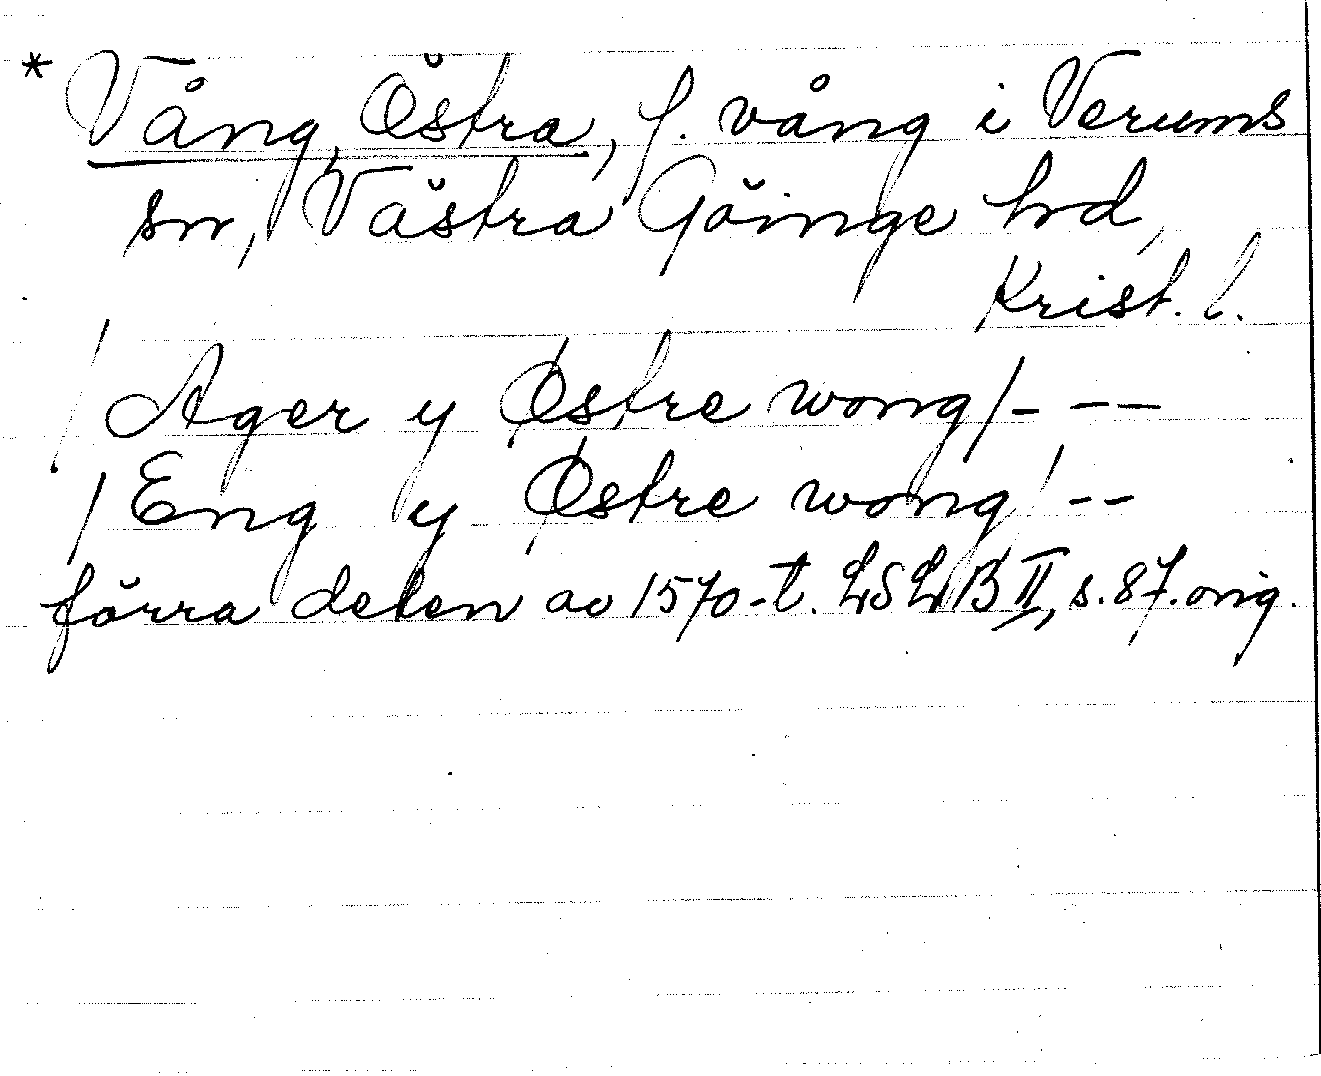 * Vång, Östra, f. vång i Verums
sn, Västra Göinge hd,
Krist. l.
/ Ager y Østre wong / - - -
/ Eng y Østre wong / - -
förra delen av 1570-t. LSLB II, s. 87. orig.